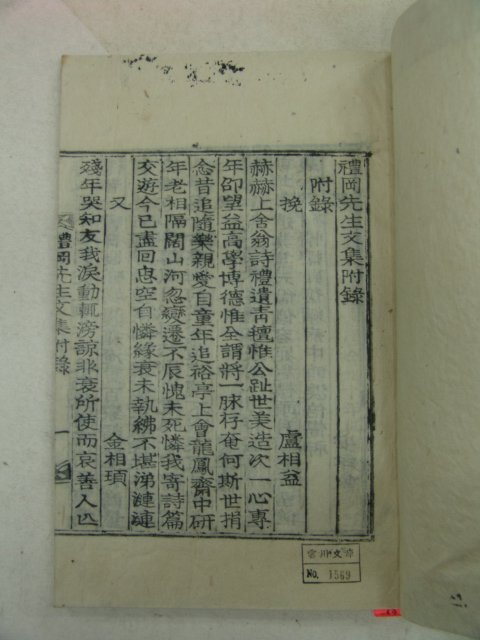 禮岡先生文集附錄
附錄
挽 盧相益
赫赫上舍翁詩禮遺靑氊惟公趾世美造次一心專
年卲望益高學博德惟全謂將一脉存奄何斯世捐
念昔追隨樂親愛自童年追裕亭上會龍鳳齋中硏
年老相隔闊山河忽變遷不辰愧未死憐我寄詩篇
交遊今已盡回思空自憐緣衰未執紼不堪涕漣漣
又 金相頊
殘年哭知友我淚動輒滂諒非衰所使而哀善人亡
禮岡先生文集附錄 一
No. 1569